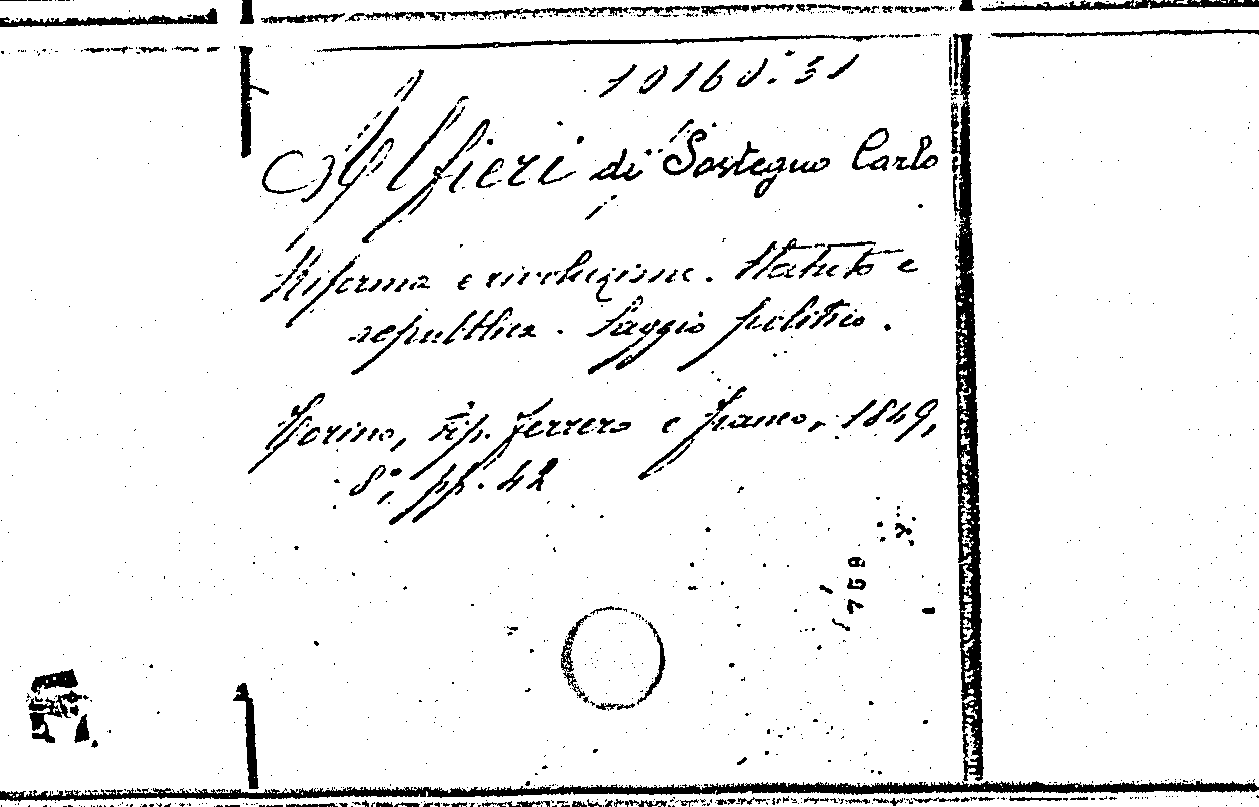 10160.31
Alfieri di Sostegno Carlo
Riforma e rivoluzione. Statuto e
repubblica. Saggio politico.
Torino, tip. Ferrero e Franco, 1849,
8°, pp. 42
759